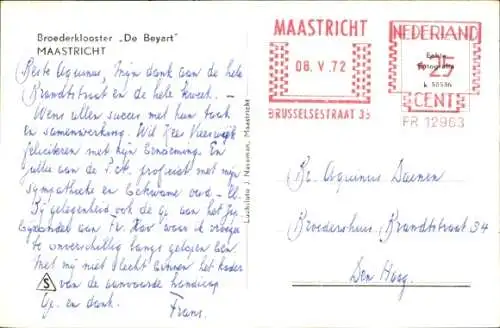 Broederklooster „De Beyart"
MAASTRICHT
Beste Aquinus, Mijn dank aan de hele
Brandtstraat en de hele kweek. -
Wens allen succes met hun taak
en samenwerking. Wil Kees
feliciteren met zijn benoeming. En
jullie aan de P.A. proficiat met mijn
sympathieke en bekwame oud-
Bij gelegenheid ook de gr. aan het
aan Fr. waar ik vroeger
te onverschillig langs gelopen ben.
Met mij niet slecht binnen het kader
van de aanvaarde handicap
Gr. en dank. Frans.
S
Luchtfoto J. Nassman, Maastricht
MAASTRICHT
08. V. 72
BRUSSELSESTRAAT 35
NEDERLAND
Echte
Fotografie
25
k 50536
CENT
FR 12963
Br. Aquinus Daemen
Broedershuis, Brandtstraat 34
Den Haag.